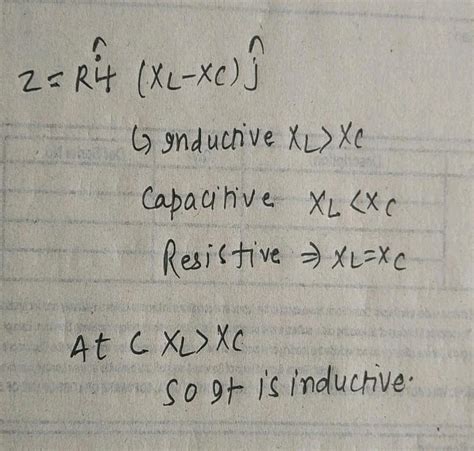 Z = Rî + (XL-XC)ĵ
↳ Inductive XL>XC
Capacitive XL<XC
Resistive ⇒ XL=XC
At C XL>XC
So It is inductive.